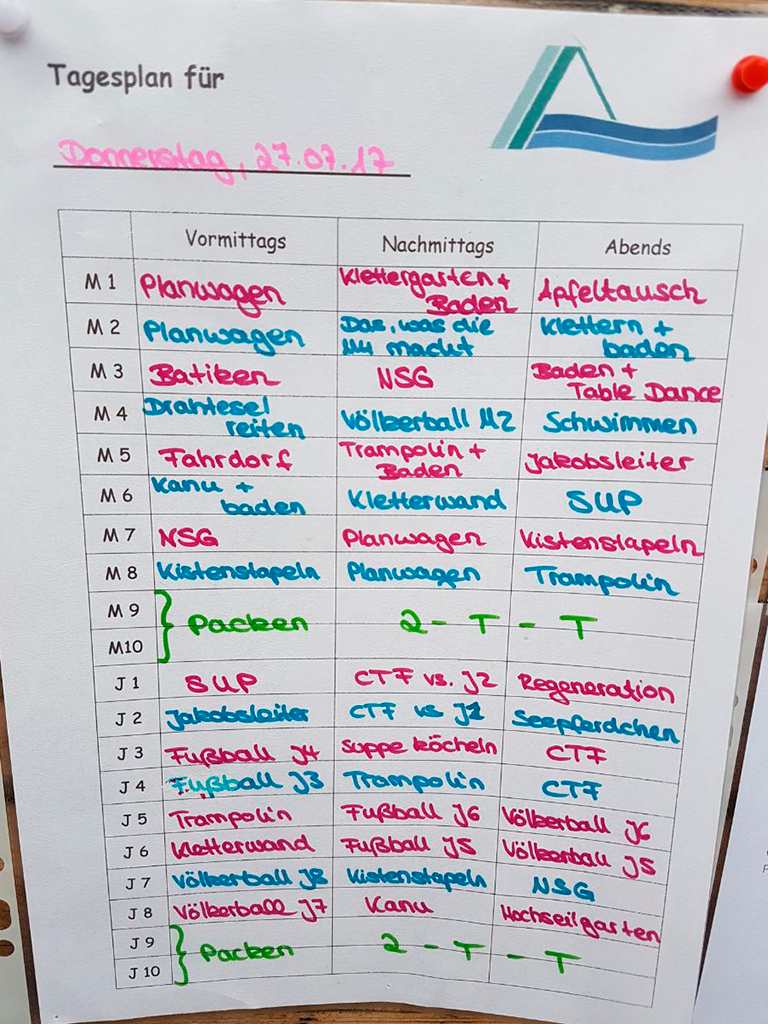 Tagesplan für
Donnerstag, 27.07.17
Vormittags Nachmittags Abends
M 1 Planwagen Klettergarten + Baden Apfeltausch
M 2 Planwagen Das, was die M4 macht Klettern + baden
M 3 Batiken NSG Baden + Table Dance
M 4 Drahtesel reiten Völkerball M2 Schwimmen
M 5 Fahrdorf Trampolin + Baden Jakobsleiter
M 6 Kanu + baden Kletterwand SUP
M 7 NSG Planwagen Kistenstapeln
M 8 Kistenstapeln Planwagen Trampolin
M 9 } Packen 2 - T - T
M10
J 1 SUP CTF vs. J2 Regeneration
J 2 Jakobsleiter CTF vs J1 Seepferdchen
J 3 Fußball J4 Suppe köcheln CTF
J 4 Fußball J3 Trampolin CTF
J 5 Trampolin Fußball J6 Völkerball J6
J 6 Kletterwand Fußball J5 Völkerball J5
J 7 Völkerball J8 Kistenstapeln NSG
J 8 Völkerball J7 Kanu Hochseilgarten
J 9 } Packen 2 - T - T
J 10